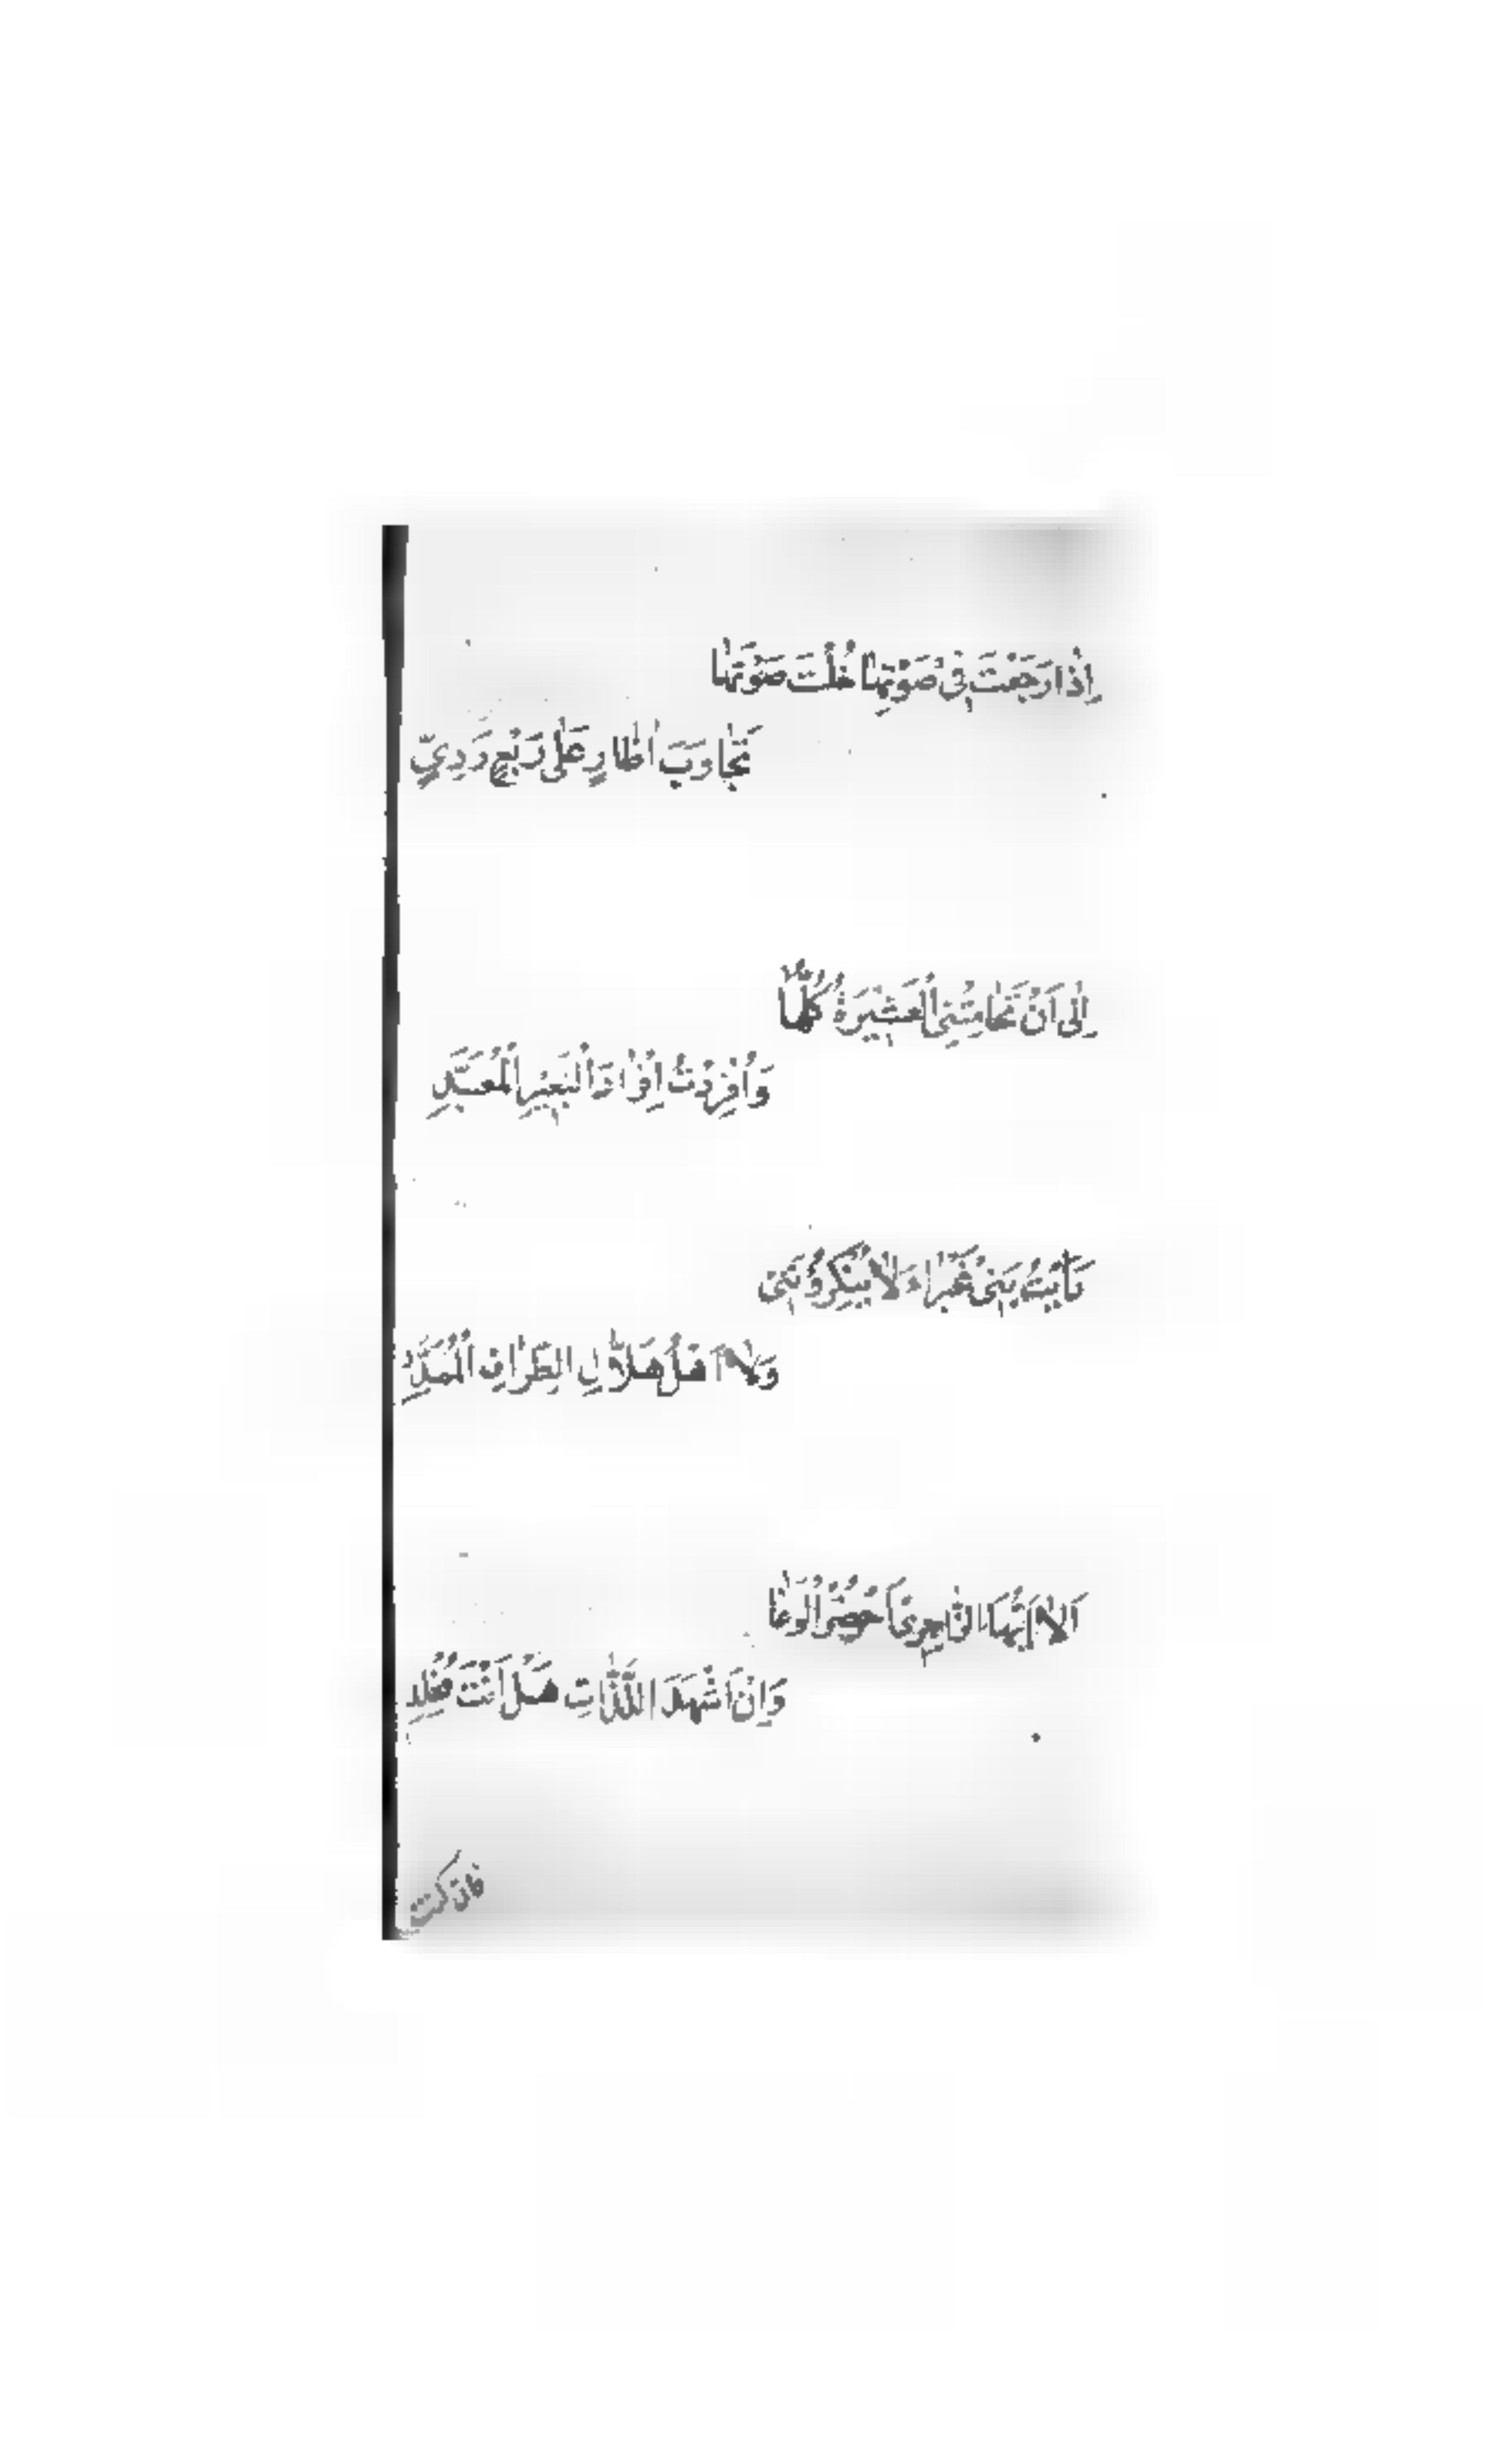 اِذَا رَجَّعَتْ فِي صَوْتِهَا خِلْتَ صَوْتَهَا
تَجَاوُبَ اَظْارٍ عَلَى رُبَعٍ رَدِيِّ
اِلَى اَنْ تَحَامَتْنِي الْعَشِيرَةُ كُلُّهَا
وَاُفْرِدْتُ اِفْرَادَ الْبَعِيرِ الْمُعَبَّدِ
رَاَيْتُ بَنِي غَبْرَاءَ لَا يُنْكِرُونَنِي
وَلَا اَهْلُ هٰذَاكَ الطِّرَافِ الْمُمَدَّدِ
اَلَا اَيُّهَا اللَّاحِي اَحْضُرُ الْوَغَا
وَاِنْ اَشْهَدَ اللَّذَّاتِ هَلْ اَنْتَ مُخْلِدِي
فان كنت